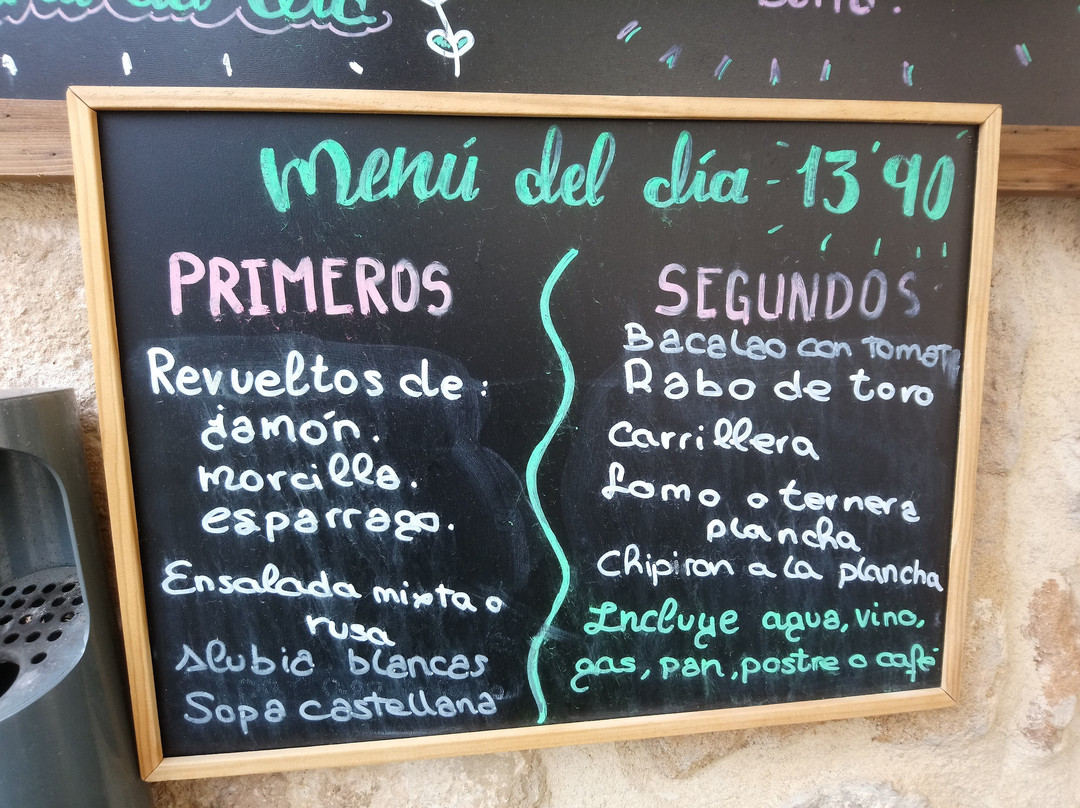 Menú del día - 13'90
PRIMEROS
Revueltos de:
jamón.
morcilla.
esparrago.
Ensalada mixta o
rusa
Alubia blancas
Sopa castellana
SEGUNDOS
Bacalao con Tomate
Rabo de toro
carrillera
Lomo o ternera
plancha
Chipiron a la plancha
Incluye agua, vino,
gas, pan, postre o café